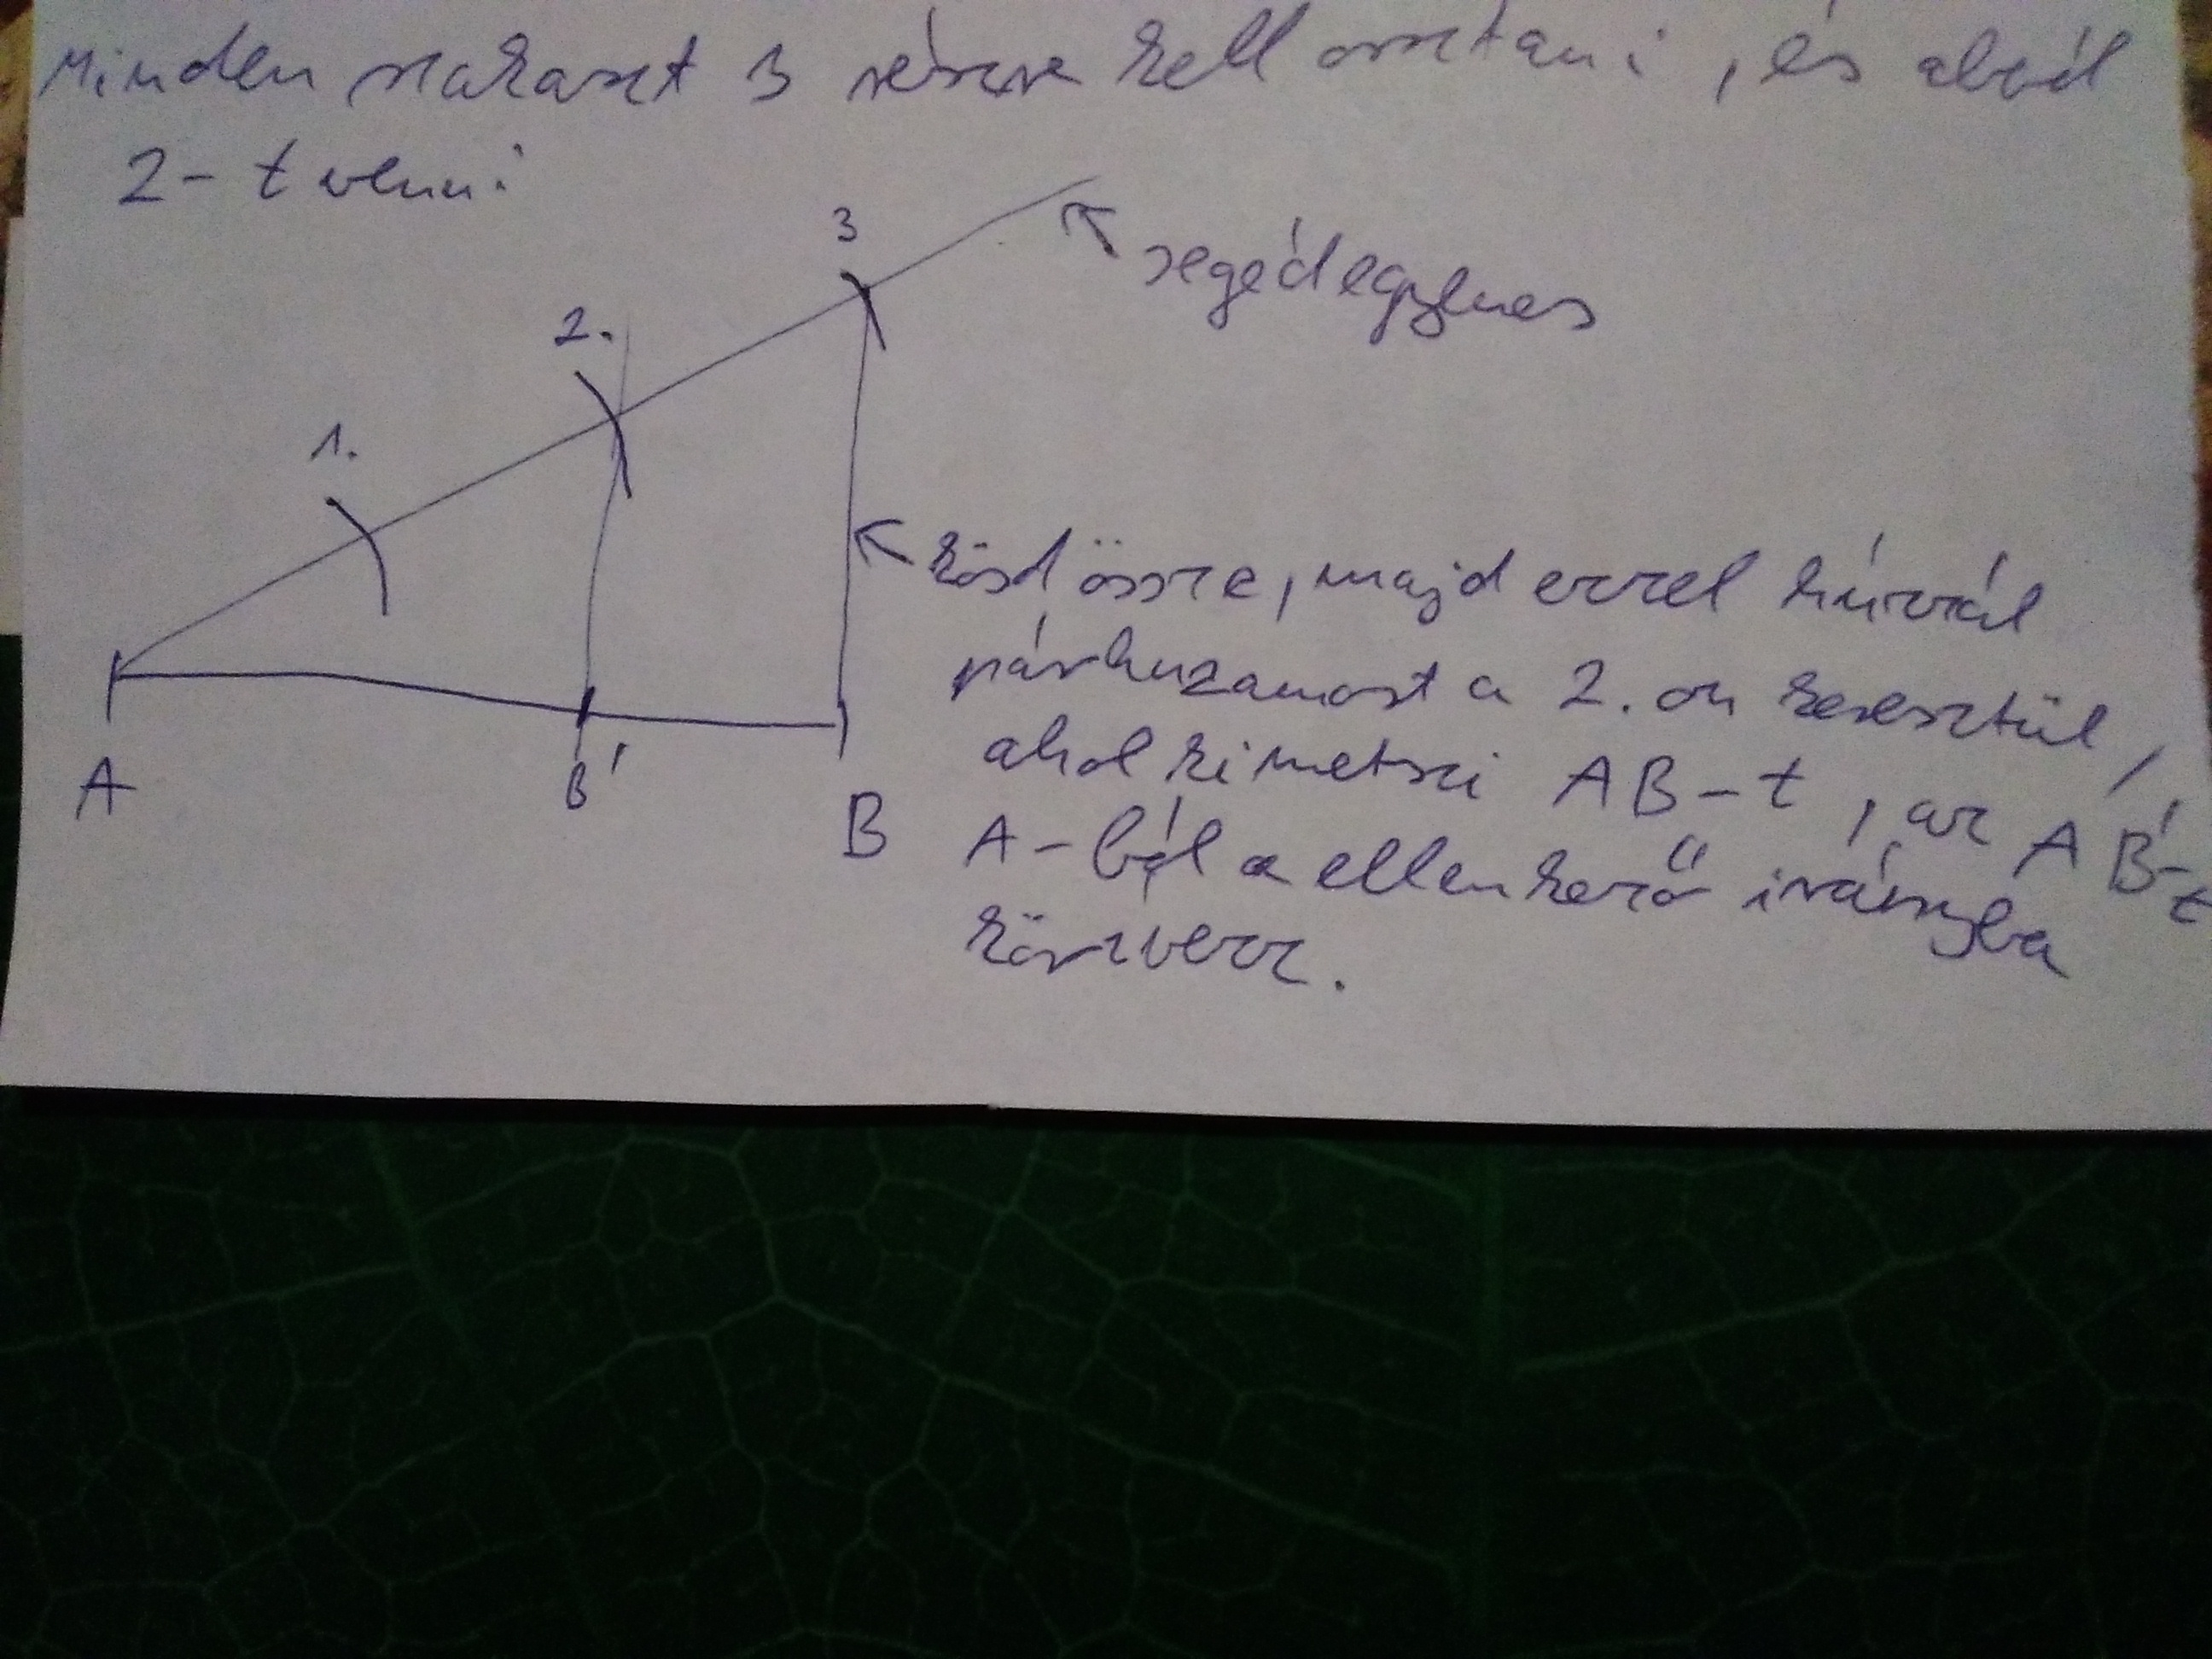 Minden szakaszt 3 részre kell osztani, és abból
2-t venni
3
segédegyenes
2.
1.
kösd össze, majd ezzel húzzál
párhuzamost a 2. on keresztül,
ahol kimetszi AB-t, az AB'-t
A B' B
A-ból a ellenkező irányba
körzvezz.